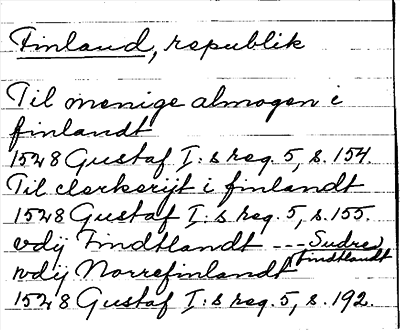 Finland, republik
Til menige almogen i
finlandt
1528 Gustaf I:s reg. 5, s. 154.
Til clerkerijt i finlandt
1528 Gustaf I:s reg. 5, s. 155.
vdij Findtlandt --- Sudre
findtlandt
vdij Norrefinlandt
1528 Gustaf I:s reg. 5, s. 192.